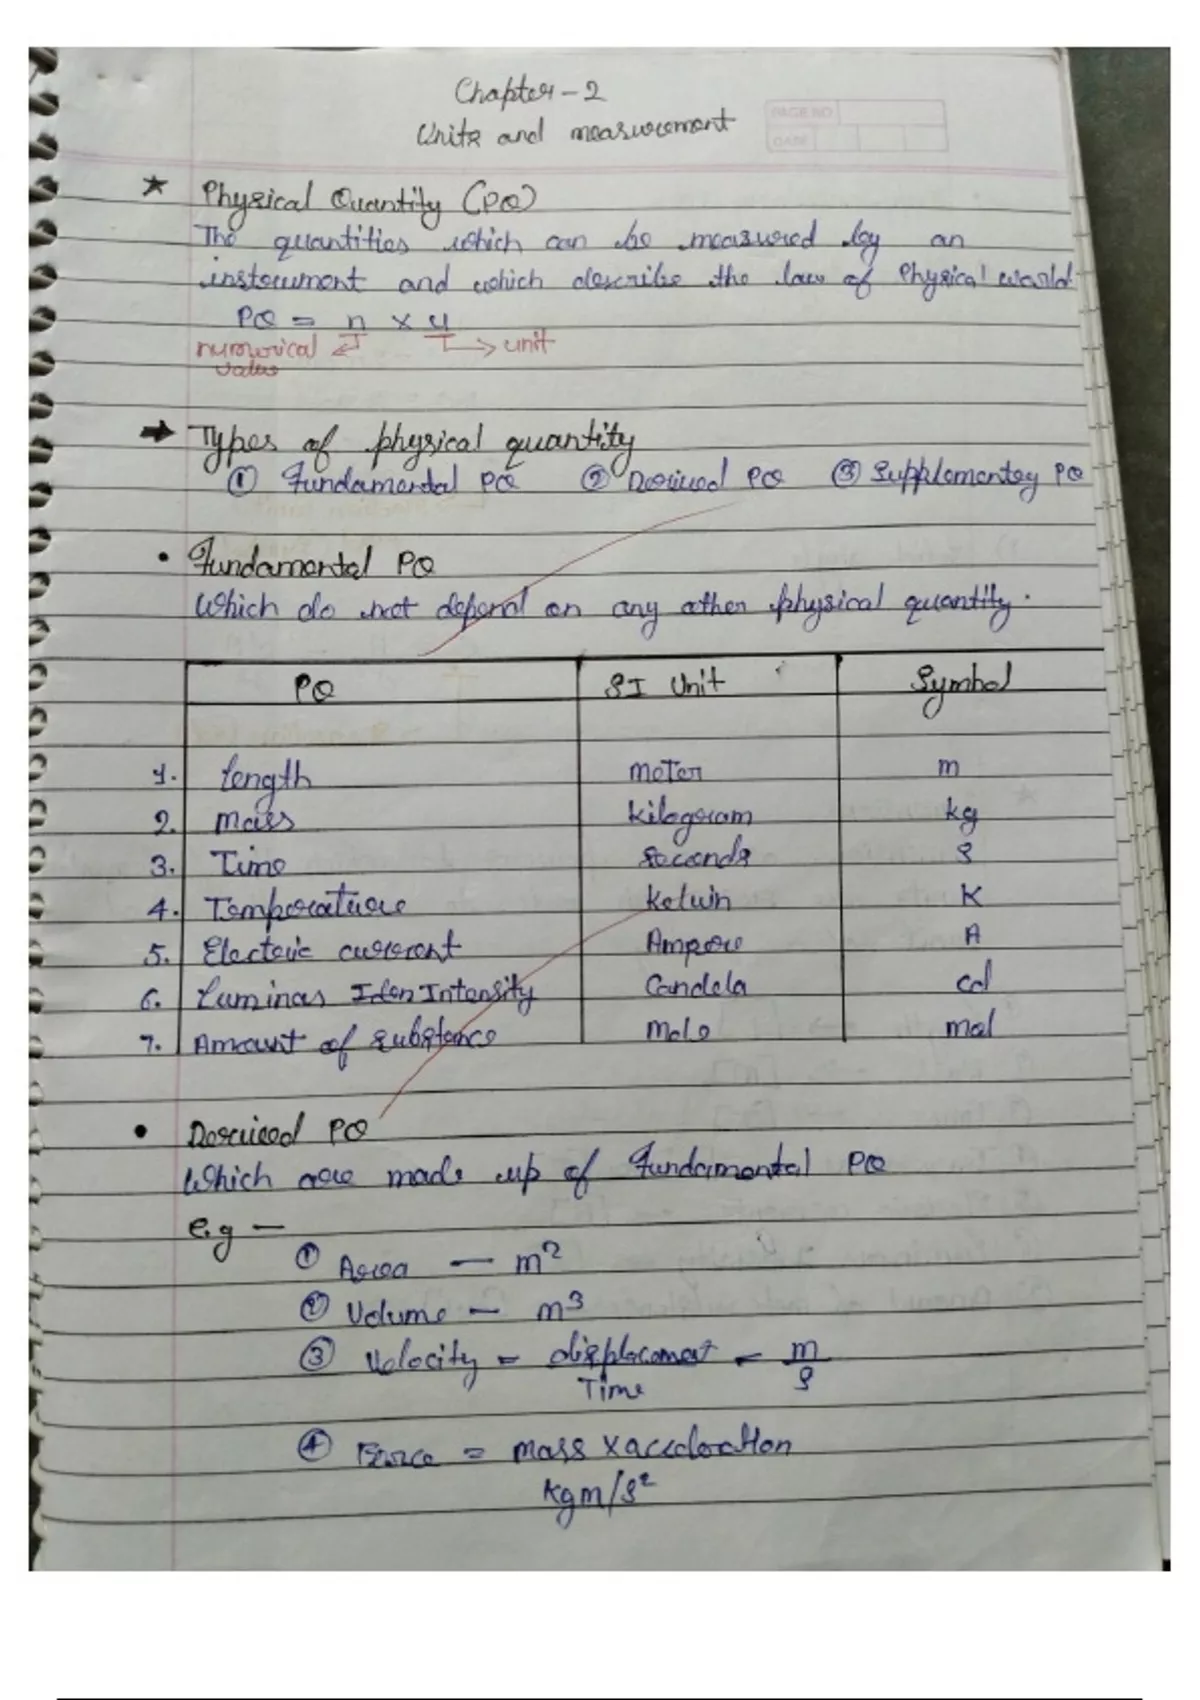 Chapter - 2
Units and measurement
PAGE NO
DATE
★ Physical Quantity (PQ)
The quantities which can be measured by an
instrument and which describe the law of Physical world.
PQ = n × u
numerical value ← → unit
→ Types of physical quantity
① Fundamental PQ ② Derived PQ ③ Supplementry PQ
• Fundamental PQ
Which do not depend on any other physical quantity.
PQ SI Unit Symbol
1. Length meter m
2. Mass kilogram kg
3. Time Seconds s
4. Temperature Kelvin K
5. Electric current Ampere A
6. Luminas Intensity Candela cd
7. Amount of substance Mole mol
• Derived PQ
Which are made up of Fundamental PQ
e.g —
① Area — m²
② Volume — m³
③ Velocity = displacement / Time = m / s
④ Force = mass × acceleration
kgm/s²